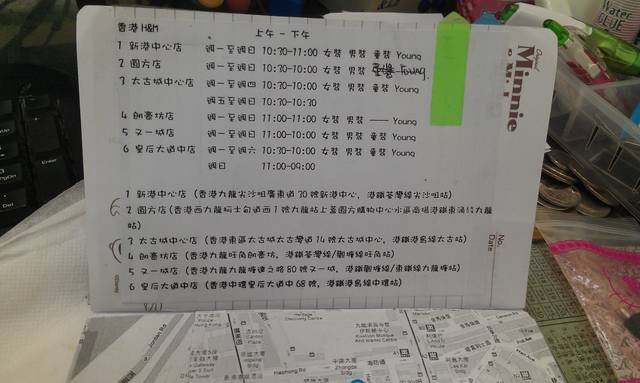 香港 H&M
上午 - 下午
1 新港中心店 週一至週日 10:30-11:00 女裝 男裝 童裝 Young
2 圓方店 週一至週日 10:30-10:00 女裝 男裝 Young
3 太古城中心店 週一至週四 10:30-10:00 女裝 男裝 童裝 Young
週五至週日 10:30-10:30
4 朗豪坊店 週一至週日 11:00-11:00 女裝 男裝 —— Young
5 又一城店 週一至週日 11:00-10:00 女裝 男裝 童裝 Young
6 皇后大道中店 週一至週六 10:30-10:00 女裝 男裝 童裝 Young
週日 11:00-09:00
1 新港中心店 (香港九龍尖沙咀廣東道 30 號新港中心, 港鐵荃灣線尖沙咀站)
2 圓方店(香港西九龍柯士甸道西 1 號九龍站上蓋圓方購物中心水區商場港鐵東涌線九龍
站)
3 太古城中心店 (香港東區太古城太古灣道 14 號太古城中心, 港鐵港島線太古站)
4 朗豪坊店 (香港九龍旺角朗豪坊, 港鐵荃灣線/觀塘線旺角站)
5 又一城店 (香港九龍九龍塘達之路 80 號又一城, 港鐵觀塘線/東鐵線九龍塘站)
6 皇后大道中店 (香港中環皇后大道中 68 號, 港鐵港島線中環站)
Original
Minnie
No.
Date
Water
GLUE
Jordan Rd
Heritage
Discovery Centre
Kowloon Mosque
And Islamic Centre
Haiphong Rd
中國大廈
Zhongda
Bldg
海防道